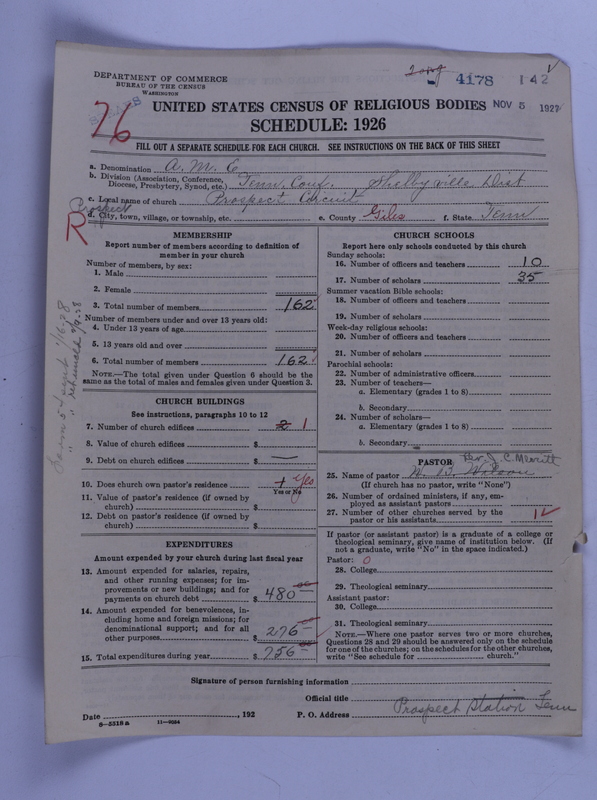 4178 142
DEPARTMENT OF COMMERCE
BUREAU OF THE CENSUS
WASHINGTON
NOV 5 1927
76
UNITED STATES CENSUS OF RELIGIOUS BODIES
SCHEDULE: 1926
FILL OUT A SEPARATE SCHEDULE FOR EACH CHURCH. SEE INSTRUCTIONS ON THE BACK OF THIS SHEET
a. Denomination A. M. E
b. Division (Association, Conference, Diocese, Presbytery, Synod, etc.) Tenn. Conf. Shelbyville Dist
c. Local name of church Prospect Circuit
Prospect
R
d. City, town, village, or township, etc. e. County Giles f. State Tenn
MEMBERSHIP
Report number of members according to definition of
member in your church
Number of members, by sex:
1. Male
2. Female
3. Total number of members 162
Number of members under and over 13 years old:
4. Under 13 years of age
5. 13 years old and over
6. Total number of members 162
NOTE.—The total given under Question 6 should be the
same as the total of males and females given under Question 3.
CHURCH BUILDINGS
See instructions, paragraphs 10 to 12
7. Number of church edifices 2 1
8. Value of church edifices $
9. Debt on church edifices $ —
10. Does church own pastor's residence + Yes
Yes or No
11. Value of pastor's residence (if owned by
church) $
12. Debt on pastor's residence (if owned by
church) $
EXPENDITURES
Amount expended by your church during last fiscal year
13. Amount expended for salaries, repairs,
and other running expenses; for im-
provements or new buildings; and for
payments on church debt $ 480 00
14. Amount expended for benevolences, in-
cluding home and foreign missions; for
denominational support; and for all
other purposes 276
15. Total expenditures during year $ 756 00
CHURCH SCHOOLS
Report here only schools conducted by this church
Sunday schools:
16. Number of officers and teachers 10
17. Number of scholars 35
Summer vacation Bible schools:
18. Number of officers and teachers
19. Number of scholars
Week-day religious schools:
20. Number of officers and teachers
21. Number of scholars
Parochial schools:
22. Number of administrative officers
23. Number of teachers—
a. Elementary (grades 1 to 8)
b. Secondary
24. Number of scholars—
a. Elementary (grades 1 to 8)
b. Secondary
PASTOR Rev J. C. Merritt
25. Name of pastor W. B. Wilson
(If church has no pastor, write "None")
26. Number of ordained ministers, if any, em-
ployed as assistant pastors
27. Number of other churches served by the
pastor or his assistants 1
If pastor (or assistant pastor) is a graduate of a college or
theological seminary, give name of institution below. (If
not a graduate, write "No" in the space indicated.)
Pastor: 0
28. College
29. Theological seminary
Assistant pastor:
30. College
31. Theological seminary
NOTE.—Where one pastor serves two or more churches,
Questions 28 and 29 should be answered only on the schedule
for one of the churches; on the schedules for the other churches,
write "See schedule for church."
Signature of person furnishing information
Official title
Date , 192 P. O. Address Prospect Station Tenn
8—5518a 11—9034